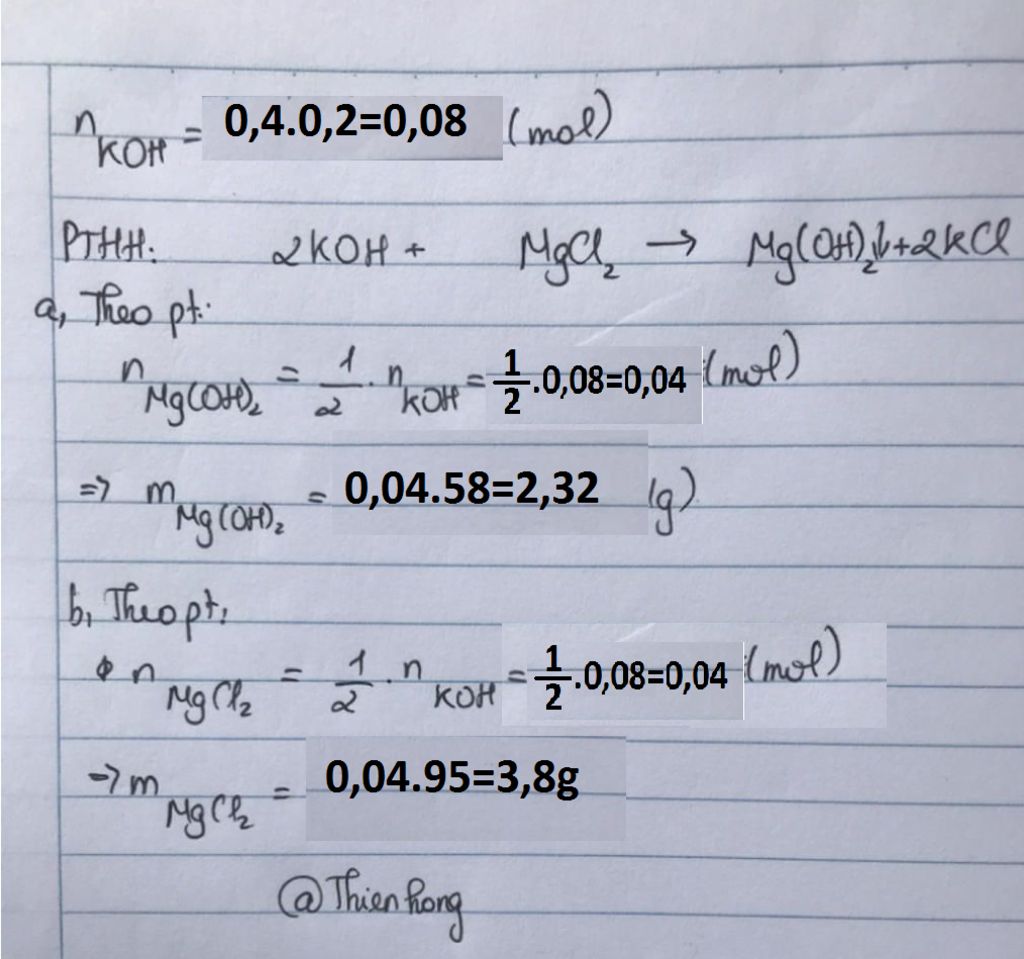 n KOH = 0,4.0,2=0,08 (mol)
PTHH: 2KOH + MgCl₂ → Mg(OH)₂↓+2KCl
a, Theo pt:
n Mg(OH)₂ = 1/2 . n KOH = 1/2 .0,08=0,04 (mol)
=> m Mg(OH)₂ = 0,04.58=2,32 (g)
b, Theo pt:
n MgCl₂ = 1/2 . n KOH = 1/2 .0,08=0,04 (mol)
-> m MgCl₂ = 0,04.95=3,8g
@Thienhong